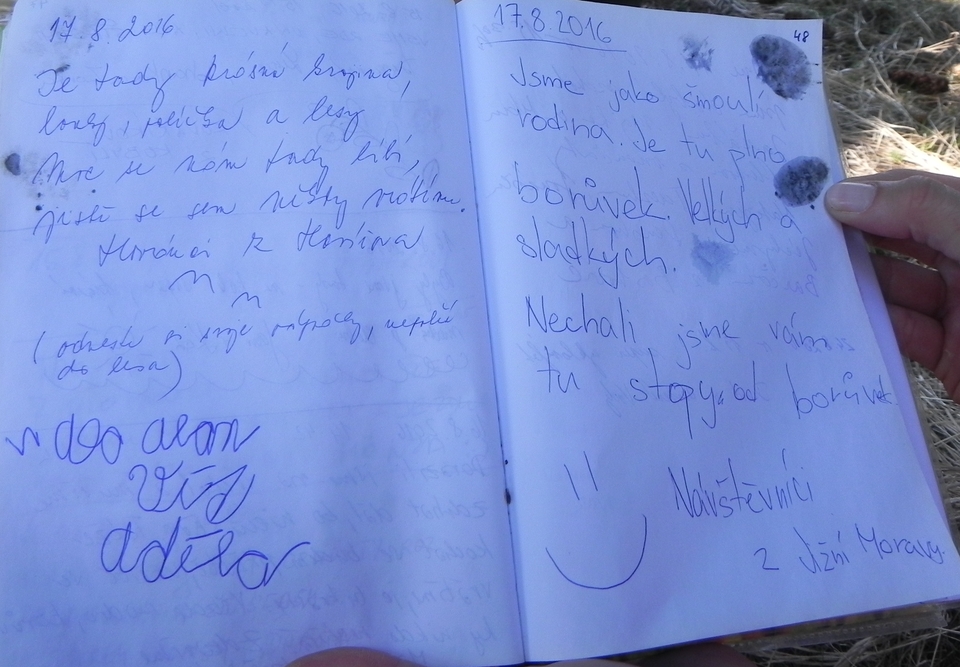 17.8.2016
Je tady krásná krajina,
louky, políčka a lesy
Moc se nám tady líbí,
jistě se sem někdy vrátíme.
Horáci z
(odneste si svoje odpadky, nepatří
do lesa)
Víťa
adéla
17.8.2016
48
Jsme jako šmoulí
rodina. Je tu plno
borůvek. Velkých a
sladkých.
Nechali jsme vám
tu stopy od borůvek
Návštěvníci
z Jižní Moravy.